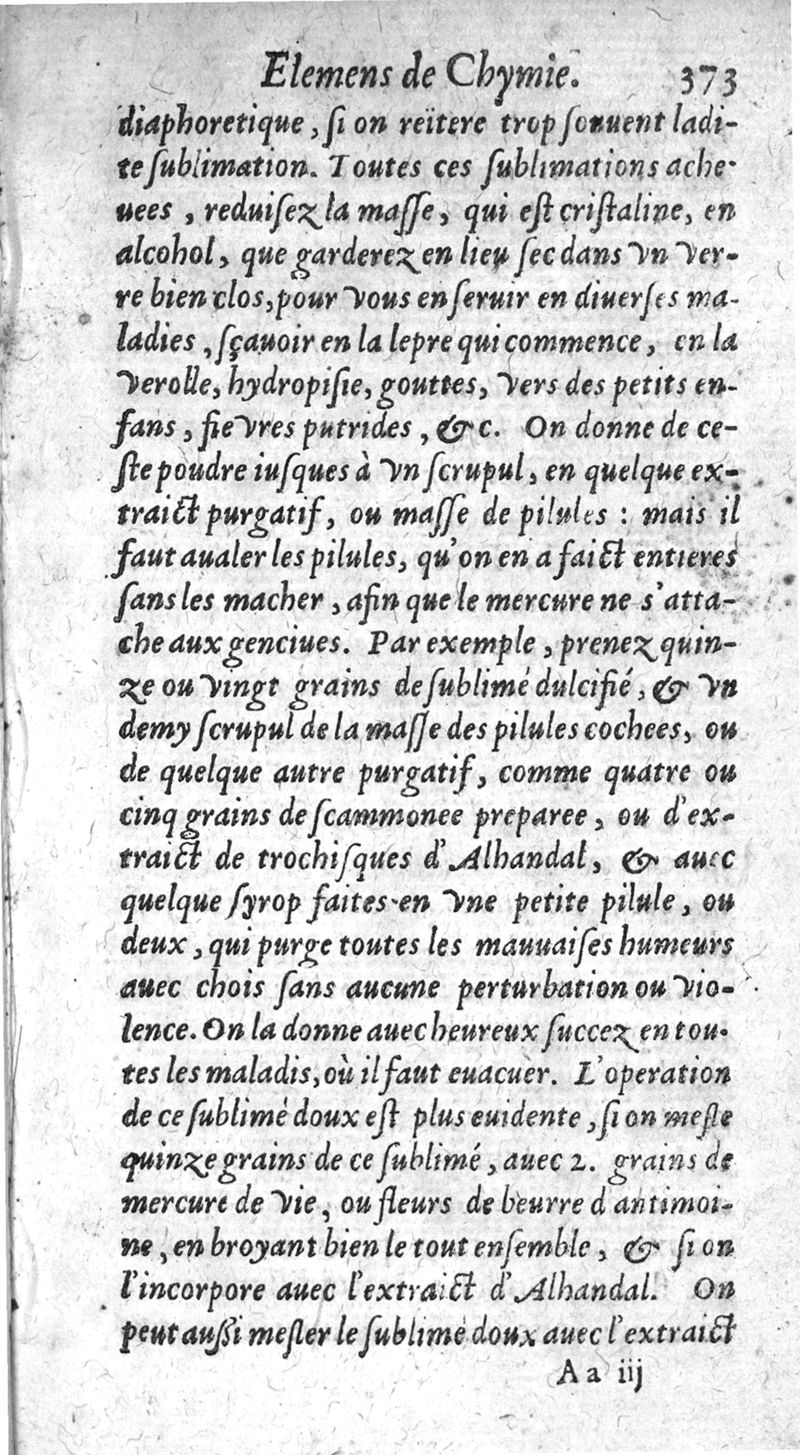 Elemens de Chymie. 373
diaphoretique, ſi on reïtere trop ſouuent ladi-
te ſublimation. Toutes ces ſublimations ache-
uees, reduiſez la maſſe, qui eſt criſtaline, en
alcohol, que garderez en lieu ſec dans vn ver-
re bien clos, pour vous en ſeruir en diuerſes ma-
ladies, ſçauoir en la lepre qui commence, en la
verolle, hydropiſie, gouttes, vers des petits en-
fans, fievres putrides, &c. On donne de ce-
ſte poudre iuſques à vn ſcrupul, en quelque ex-
traict purgatif, ou maſſe de pilules : mais il
faut aualer les pilules, qu'on en a faict entieres
ſans les macher, afin que le mercure ne s'atta-
che aux genciues. Par exemple, prenez quin-
ze ou vingt grains de ſublimé dulcifié, & vn
demy ſcrupul de la maſſe des pilules cochees, ou
de quelque autre purgatif, comme quatre ou
cinq grains de ſcammonee preparee, ou d'ex-
traict de trochiſques d'Alhandal, & auec
quelque ſyrop faites-en vne petite pilule, ou
deux, qui purge toutes les mauuaiſes humeurs
auec chois ſans aucune perturbation ou vio-
lence. On la donne auec heureux ſuccez en tou-
tes les maladis, où il faut euacuer. L'operation
de ce ſublimé doux eſt plus euidente, ſi on meſle
quinze grains de ce ſublimé, auec 2. grains de
mercure de vie, ou fleurs de beurre d'antimoi-
ne, en broyant bien le tout enſemble, & ſi on
l'incorpore auec l'extraict d'Alhandal. On
peut auſſi meſler le ſublimé doux auec l'extraict
Aa iij